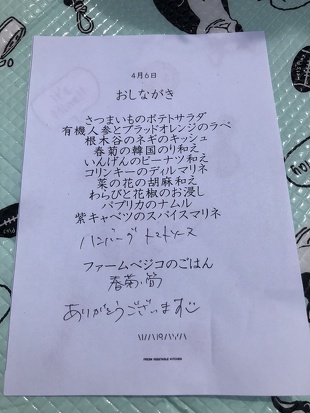 4月6日
おしながき
さつまいものポテトサラダ
有機人参とブラッドオレンジのラペ
根木谷のネギのキッシュ
春菊の韓国のり和え
いんげんのピーナツ和え
コリンキーのディルマリネ
菜の花の胡麻和え
わらびと花椒のお浸し
パプリカのナムル
紫キャベツのスパイスマリネ
ハンバーグ トマトソース
ファームベジコのごはん
春菊・筍
ありがとうございます
FRESH VEGETABLE KITCHEN